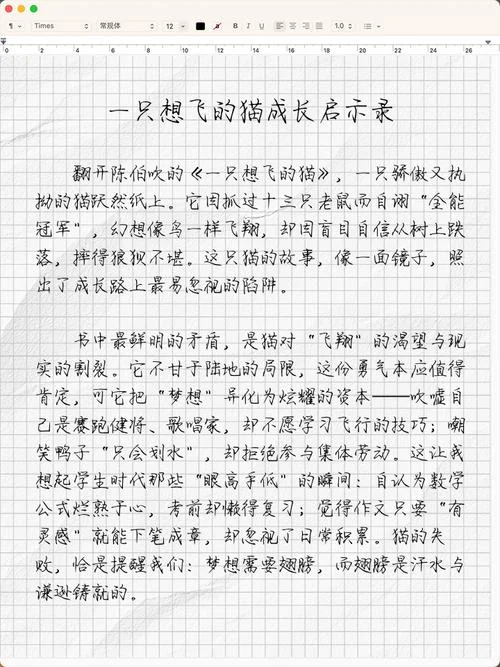 Times
常规体
12
B I U
1.0
0 2 4 6 8 10 12 14 16 18 20 22 24 26
一只想飞的猫成长启示录
翻开陈伯吹的《一只想飞的猫》，一只骄傲又执
拗的猫跃然纸上。它因抓过十三只老鼠而自诩“全能
冠军”，幻想像鸟一样飞翔，却因盲目自信从树上跌
落，摔得狼狈不堪。这只猫的故事，像一面镜子，照
出了成长路上最易忽视的陷阱。
书中最鲜明的矛盾，是猫对“飞翔”的渴望与现
实的割裂。它不甘于陆地的局限，这份勇气本应值得
肯定，可它把“梦想”异化为炫耀的资本——吹嘘自
己是赛跑健将、歌唱家，却不愿学习飞行的技巧；嘲
笑鸭子“只会划水”，却拒绝参与集体劳动。这让我
想起学生时代那些“眼高手低”的瞬间：自认为数学
公式烂熟于心，考前却懒得复习；觉得作文只要“有
灵感”就能下笔成章，却忽视了日常积累。猫的失
败，恰是提醒我们：梦想需要翅膀，而翅膀是汗水与
谦逊铸就的。